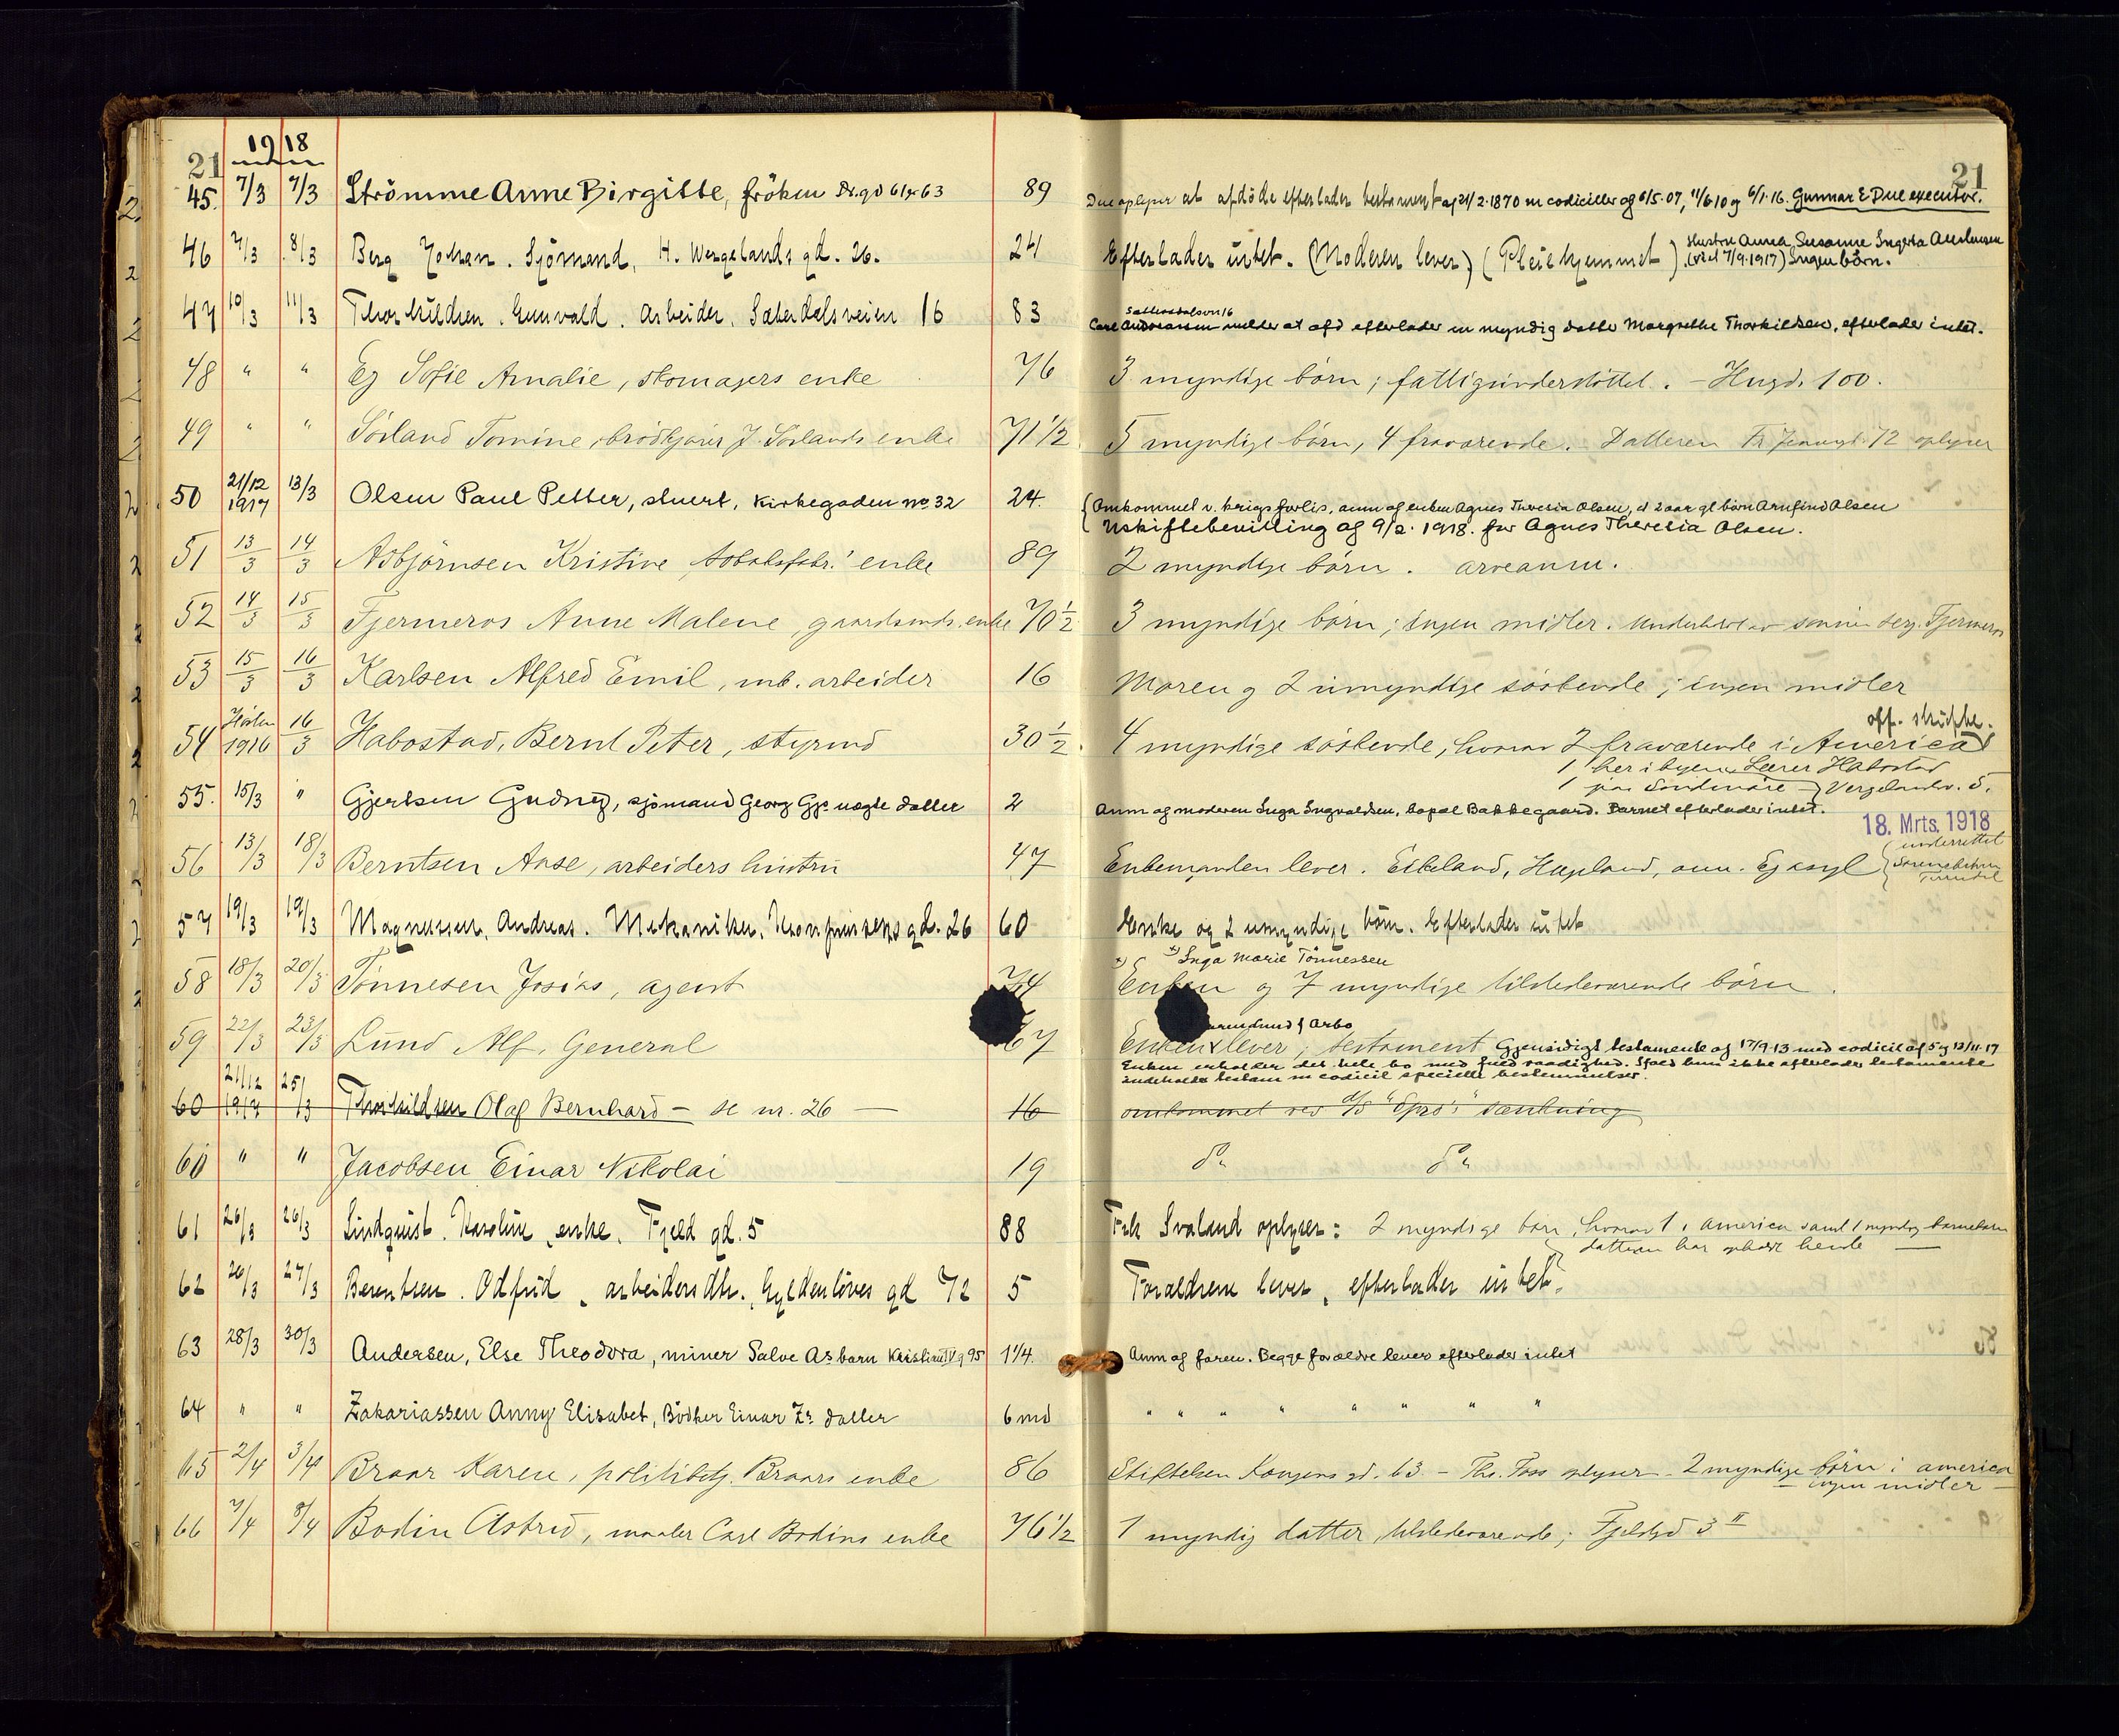 21 1918 21
45. 7/3 7/3 Strömme Anne Birgitte, fröken Dr.gd 61 & 63 89 Due oplyser at afdöde efterlader testament af 21/2.1870 m codiciller af 6/5.07, 11/6.10 og 6/1.16. Gunnar E Due executor.
46 7/3 8/3 Berg Johan. Sjömand, H. Wergelands gd. 26. 24 Efterlader intet. (Moderen lever) (Pleiehjemmet) Hustru Anna Susanne Ingerta
(viet 7/9.1917) Ingen börn.
Sætersdalsvn 16
47 10/3 11/3 Thorkildsen. Gunvald. Arbeider. Sæterdalsveien 16 83 Carl Andreassen melder at afd efterlader en myndig datter Margrethe Thorkildsen, efterlader intet.
48 " " Eg Sofie Amalie, skomagers enke 76 3 myndige börn; fattigunderstöttet. - Hugd. 100.
49 " " Sörland Tomine, brödkjörer J. Sörlands enke 71 1/2 5 myndige börn, 4 fraværende. Datteren 72 oplyser
50 21/12 1917 13/3 Olsen Paul Petter, stuert, Kirkegaden no. 32 24. Omkommet v. krigsforlis, anm af enken Agnes Theresia Olsen, et 2 aar gl barn Arnfind Olsen
Uskiftebevilling af 9/2. 1918. for Agnes Theresia Olsen.
51 13/3 14/3 Asbjörnsen Kristine, tobaksfabr.' enke 89 2 myndige börn. arveanm.
52 14/3 15/3 Fjermeros Anne Malene, gaardmds. enke 70 1/2 3 myndige börn; ingen midler. Underholdt av sönnen serg. Fjermeros
53 15/3 16/3 Karlsen Alfred Emil, mb. arbeider 16 Moren og 2 umyndige söskende; ingen midler
off. skifte.
54 Hösten 1916 16/3 Habostad, Bernt Peter, styrmd 30 1/2. 4 myndige söskende, hvorav 2 fraværende i America
1 her i byen, Lærer Habostad
1 paa Söndmöre - Vergelandsv. 5.
55. 15/3 " Gjertsen Gudny, sjömand Georg Gjs uægte datter 2 Anm af moderen Inga Ingvaldsen, bopæl Bakkegaard. Barnet efterlader intet.
18. Mrts. 1918
underrettet
56 13/3 18/3 Berntsen Aase, arbeiders hustru 47 Enkemanden lever. Eikeland, Hægeland, anm. Eg asyl
57 19/3 19/3 Magnussen, Andreas. Mekaniker. Kronprinsens gd. 26 60 Enke og 2 umyndige börn. Efterlader intet
x) Inga Marie Tönnessen
58 18/3 20/3 Tönnesen Josias, agent 74 Enken og 7 myndige tilstedeværende börn.
f Arbo
59 22/3 23/3 Lund Alf, General 67 Enken x lever; testament Gjensidigt testamente af 17/9.13 med codicil af 5 og 12/11.17
Enken erholder det hele bo med fuld raadighed. Ifald hun ikke efterlader testamente
indeholder testam m codicil specielle bestemmelser.
60 21/12 1917 25/3 Thorkildsen Olaf Bernhard - se nr. 26 - 16 omkommet ved d/s "Sprö's" sænkning
60 " " Jacobsen Einar Nikolai 19 do do
61 26/3 26/3 Lindquist. Karoline, enke. Fjeld gd. 5 88 Frk Svaland oplyser: 2 myndige barn, hvorav 1 i America samt 1 myndig barnebarn
datteren har ophold hende
62 26/3 27/3 Berentsen. Odfrid, arbeiders dtr. Gyldenlöves gd 72 5 Forældrene lever, efterlader intet.
63 28/3 30/3 Andersen, Else Theodora, miner Salve As barn Kristian IV g 95 1 1/4. Anm af faren. Begge forældre lever efterlader intet
64 " " Zakariassen Anny Elisabet, Bödker Einar Zs datter 6 md " " " " " " " "
65 2/4 3/4 Braar Karen, politibetj. Braars enke 86 Stiftelsen Kongens gd. 63 - Th. Foss oplyser - 2 myndige börn i america
- ingen midler -
66 7/4 8/4 Bodin Astrid, maaler Carl Bodins enke 76 1/2 1 myndig datter, tilstedeværende; Fjeldgd 3 II